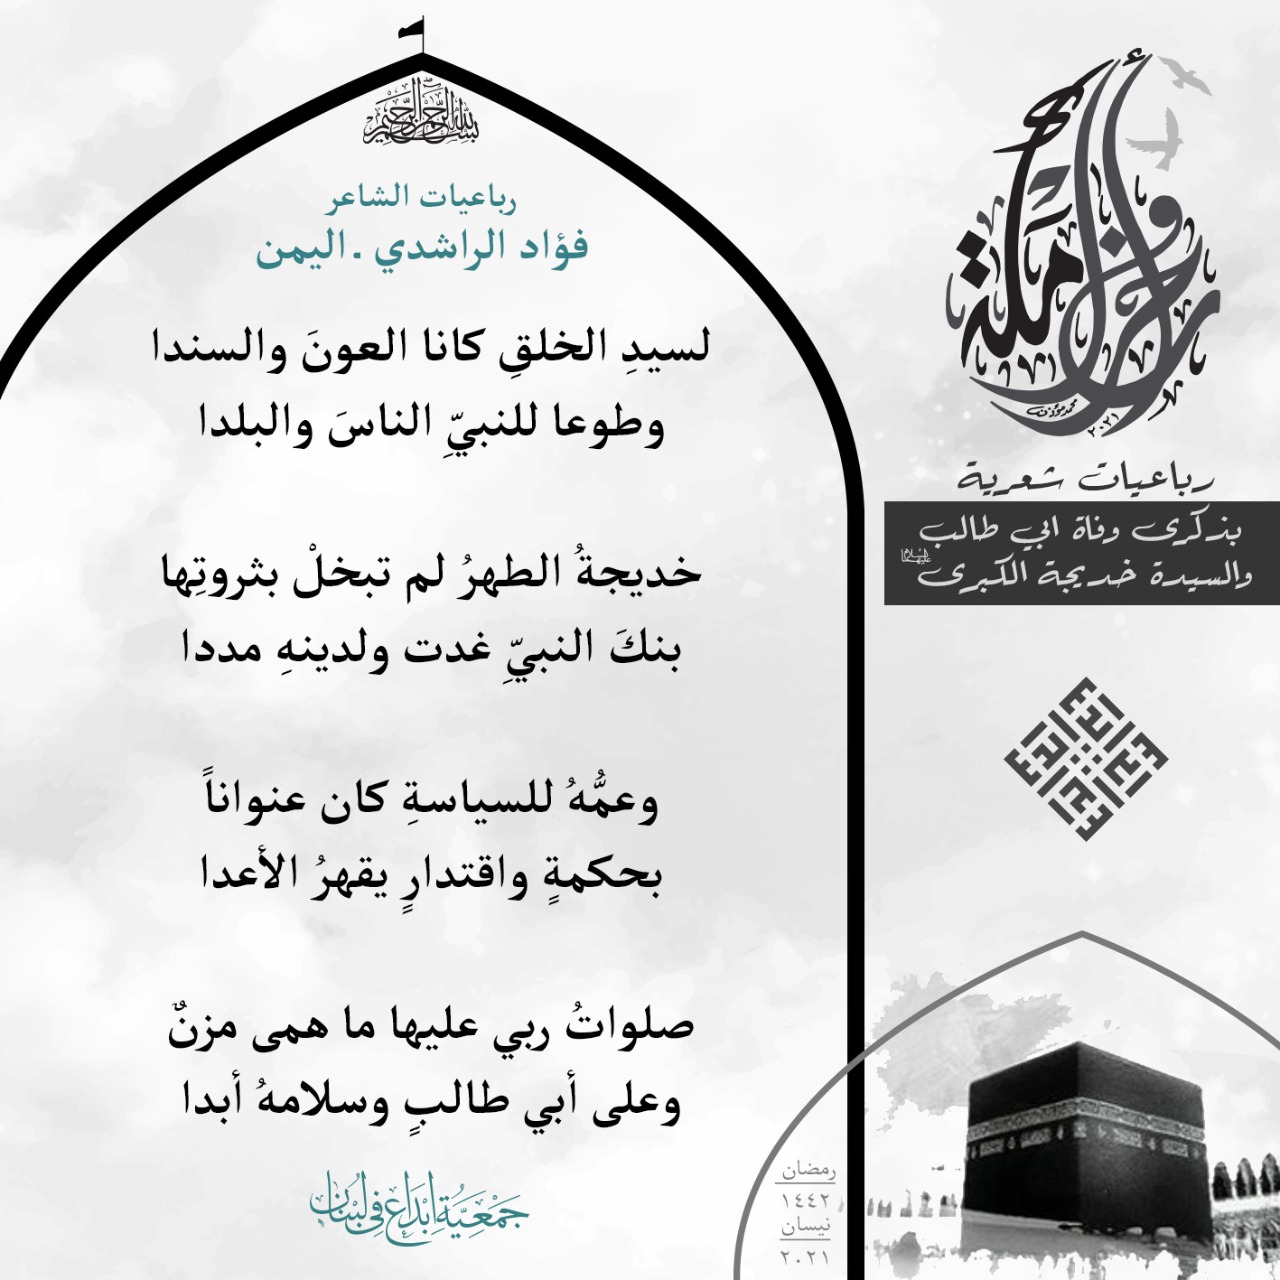 بسم الله الرحمن الرحيم
رباعيات الشاعر
فؤاد الراشدي ـ اليمن
لسيدِ الخلقِ كانا العونَ والسندا
وطوعا للنبيِّ الناسَ والبلدا
خديجةُ الطهرُ لم تبخلْ بثروتِها
بنكَ النبيِّ غدت ولدينهِ مددا
وعمُّهُ للسياسةِ كان عنواناً
بحكمةٍ واقتدارٍ يقهرُ الأعدا
صلواتُ ربي عليها ما همى مزنٌ
وعلى أبي طالبٍ وسلامهُ أبدا
جَمْعِيَّةُ إبْدَاع فِي لُبْنَان
محمد مؤذن
٢٠٢١
رباعيات شعرية
بذكرى وفاة ابي طالب
والسيدة خديجة الكبرى عليهما السلام
رمضان
١٤٤٢
نيسان
٢٠٢١